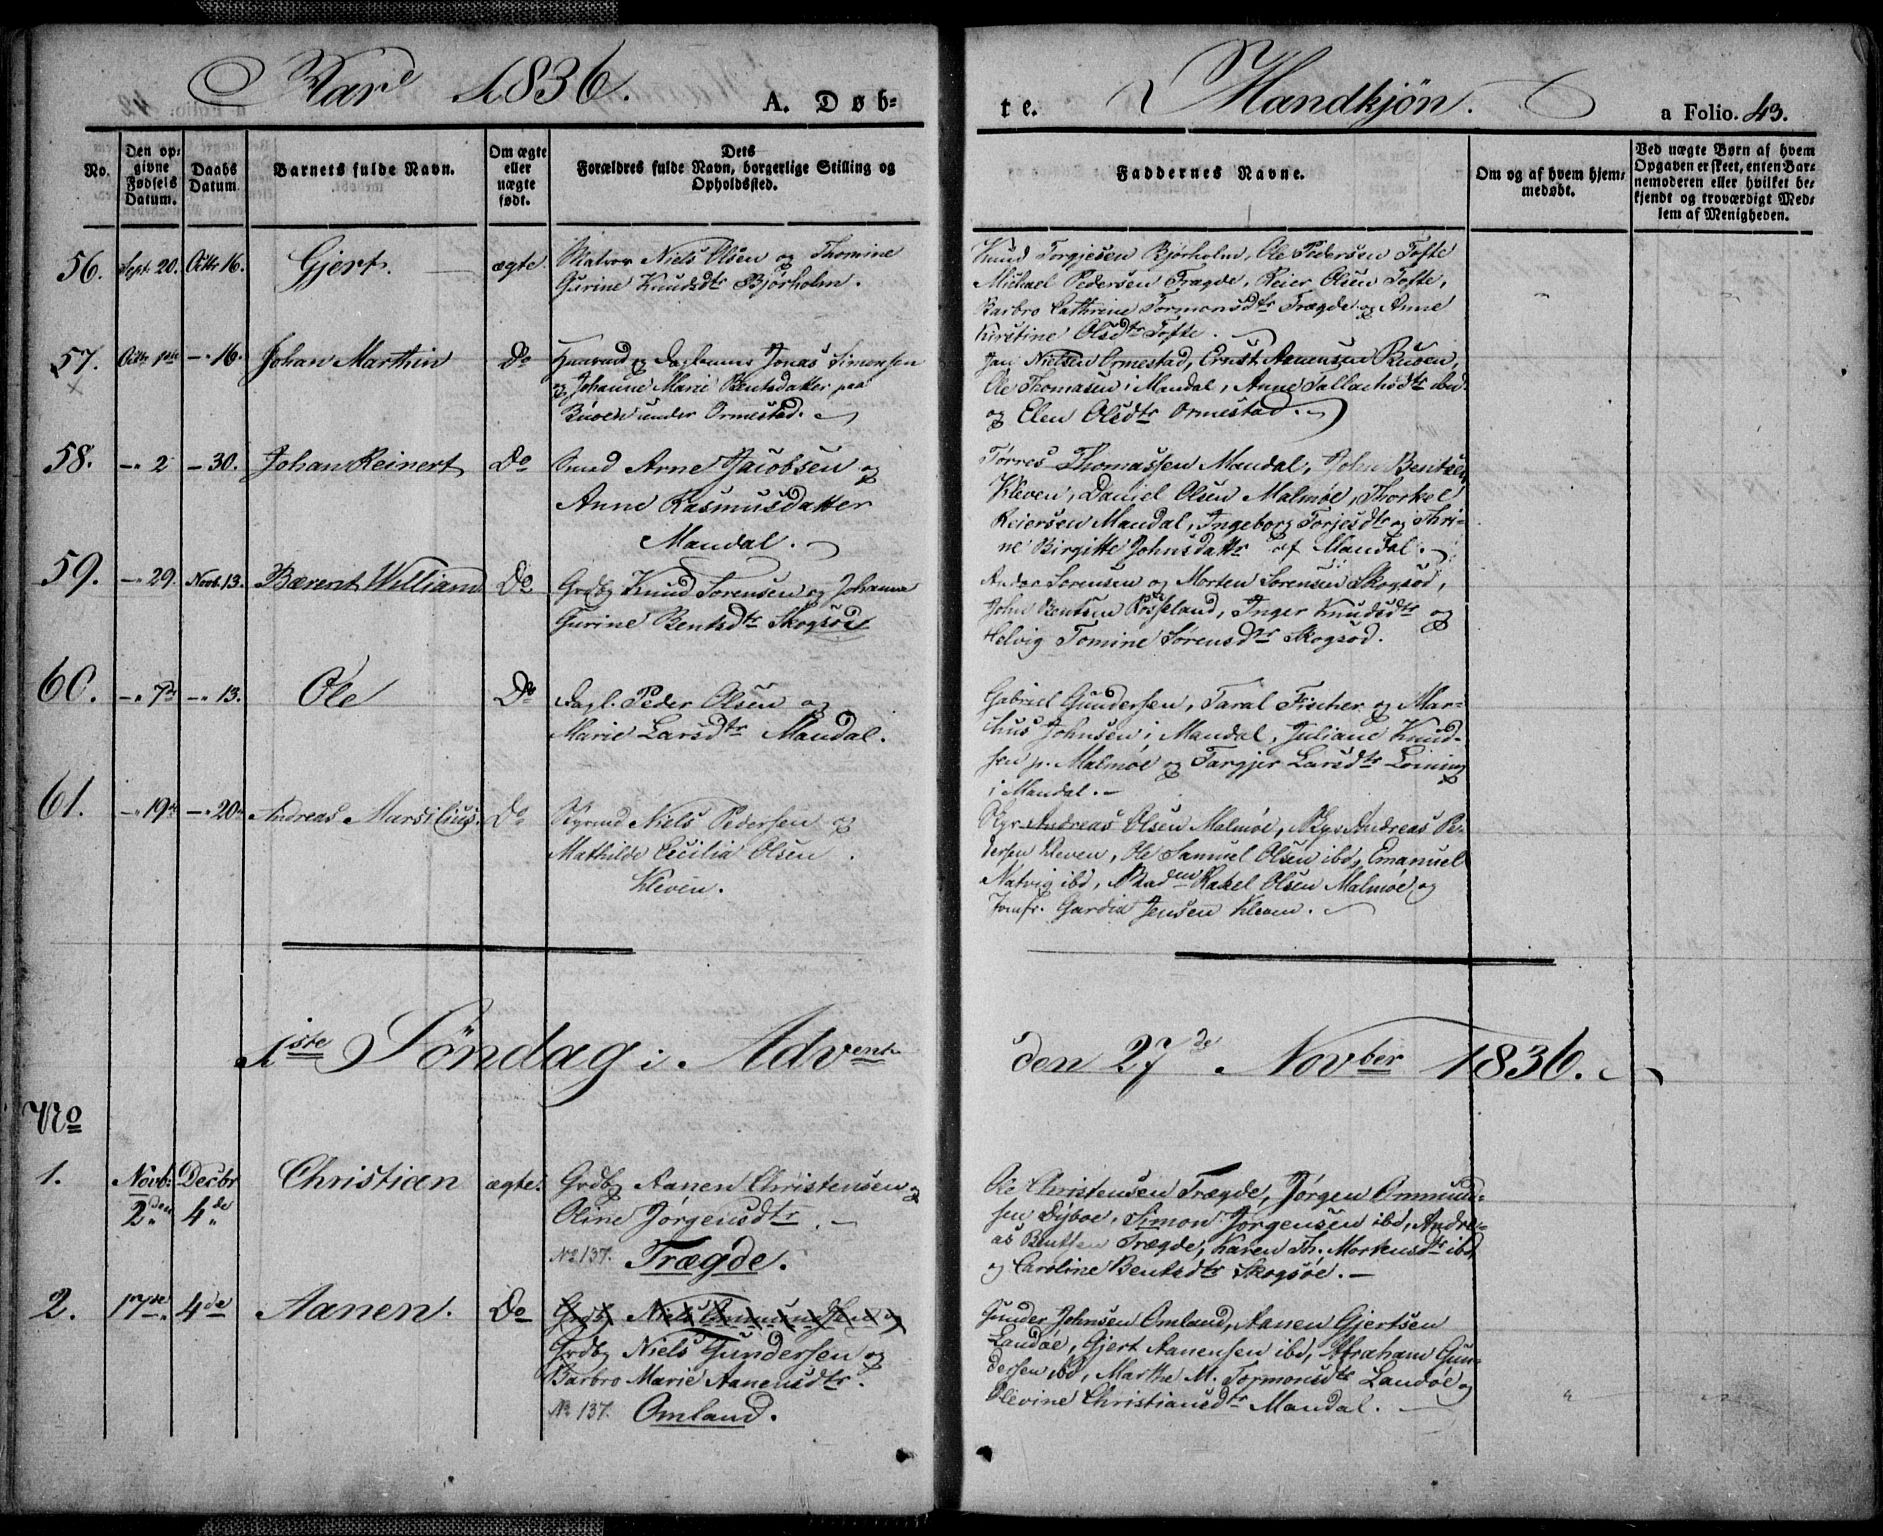 Aar 1836. A. Døb=
te. Mandkjøn. a Folio. 43.
No.
Den op=
givne
Fødsels
Datum.
Daabs
Datum
Barnets fulde Navn.
Om ægte
eller
uægte
født.
Dets
Forældres fulde Navn, borgerlige Stilling og
Opholdssted.
Faddernes Navne.
Om og af hvem hjem=
medøbt.
Ved uægte Børn af hvem
Opgaven er skeet, enten Bar=
nemoderen eller hvilket be=
kjendt og troværdigt Med=
lem af Menigheden.
56. Sept. 20. Octbr 16. Gjert. ægte.
Matros Niels Olsen og Thomine
Gurine Knudsdtr Bjørholm.
Knud Torgjesen Bjørholm, Ole Pedersen Tofte
Michael Pedersen Trægde, Reier Olsen Tofte,
Barbro Cathrine Tormonsdtr Trægde og Anne
Kirstine Olsdtr Tofte.
57. Octbr 1ste –"16. Johan Marthin Do
Huusmd og Jonas Simonsen
og Johanne Marie Bentsdatter paa
Buøen under Ormestad.
Jan Nielsen Ormestad, Ernst Aanensen Buøen,
Ole Thomasen i Mandal, Anne Tallachsdtr ibd
og Elen Olsdtr Ormestad.
58. –" 2 – 30. Johan Reinert Do
Smed Arne Jacobsen og
Anne Rasmusdatter
Mandal.
Tørres Thomassen Mandal, John Bentsen
Kleven, Daniel Olsen Malmøe, Thorkel
Reiersen Mandal, Ingeborg Torjesdtr og Thri-
ne Birgitte Johnsdattr af Mandal.
59. –" 29. Novb. 13. Bærent William Do
Grdbg Knud Sørensen og Johanne
Gurine Bentsdtr Skogsøe
Anders Sørensen og Morten Sørensen Skogsøe,
John Bentsen Rosseland, Inger Knudsdtr og
Helvig Tomine Sørensdtr Skogsød.
60. –" 7de –" 13. Ole Do
Dagl. Peder Olsen og
Marie Larsdtr Mandal.
Gabriel Gundersen, Taral Fischer og Mar-
thus Johnsen i Mandal, Juliane Knud-
sen p. Malmøe og Targjer Larsdtr Loining
i Mandal. –
61. –" 19de –" 20de Andreas Marsilius. Do
Styrmd Niels Pedersen og
Mathilde Cecilia Olsen
Kleven.
Skpr Andreas Olsen Malmøe, Skpr Andreas Pe-
dersen Kleven, Ole Samuel Olsen ibd, Emanuel
Natvig ibd, Madm Rakel Olsen Malmøe og
Jomfr. Gardia Jensen Kleven.
1ste Søndag i Advent
den 27de Novber 1836.
No
1. Novb: 2den Decbr 4de Christian ægte.
Grdbg Aanen Christensen og
Oline Jørgensdtr. –
No 137. Trægde.
Ole Christensen Trægde, Jørgen Ommund-
sen Dyboe, Simon Jørgensen ibd, Andre-
as Bentsen Trægde, Karen Th. Mortensdtr ibd
og Caroline Bentsdtr Skogsøe. –
2. 17de 4de Aanen. Do
Grdbg Niels Ommundsen og
Grdbg Niels Gundersen og
Barbro Marie Aanensdtr.
No 137. Omland.
Gunder Johnsen Omland, Aanen Gjertsen
Landøe, Gjert Aanensen ibd, Abraham Gun-
dersen ibd, Marthe M. Tormonsdtr Landøe og
Olevine Christiansdtr Mandal.